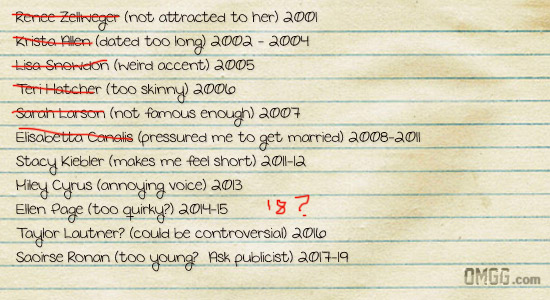 Renee Zellweger (not attracted to her) 2001
Krista Allen (dated too long) 2002 - 2004
Lisa Snowdon (weird accent) 2005
Teri Hatcher (too skinny) 2006
Sarah Larson (not famous enough) 2007
Elisabetta Canalis (pressured me to get married) 2008-2011
Stacy Kiebler (makes me feel short) 2011-12
Miley Cyrus (annoying voice) 2013
Ellen Page (too quirky?) 2014-15 18?
Taylor Lautner? (could be controversial) 2016
Saoirse Ronan (too young? Ask publicist) 2017-19
OMGG.com